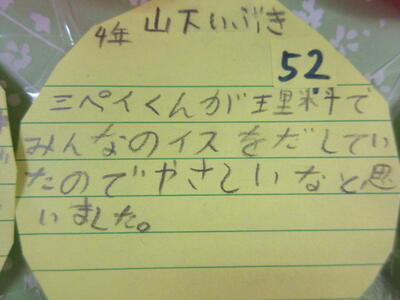 4年 山下いぶき
52
三ペイくんが理科で
みんなのイスをだしてい
たのでやさしいなと思
いました。